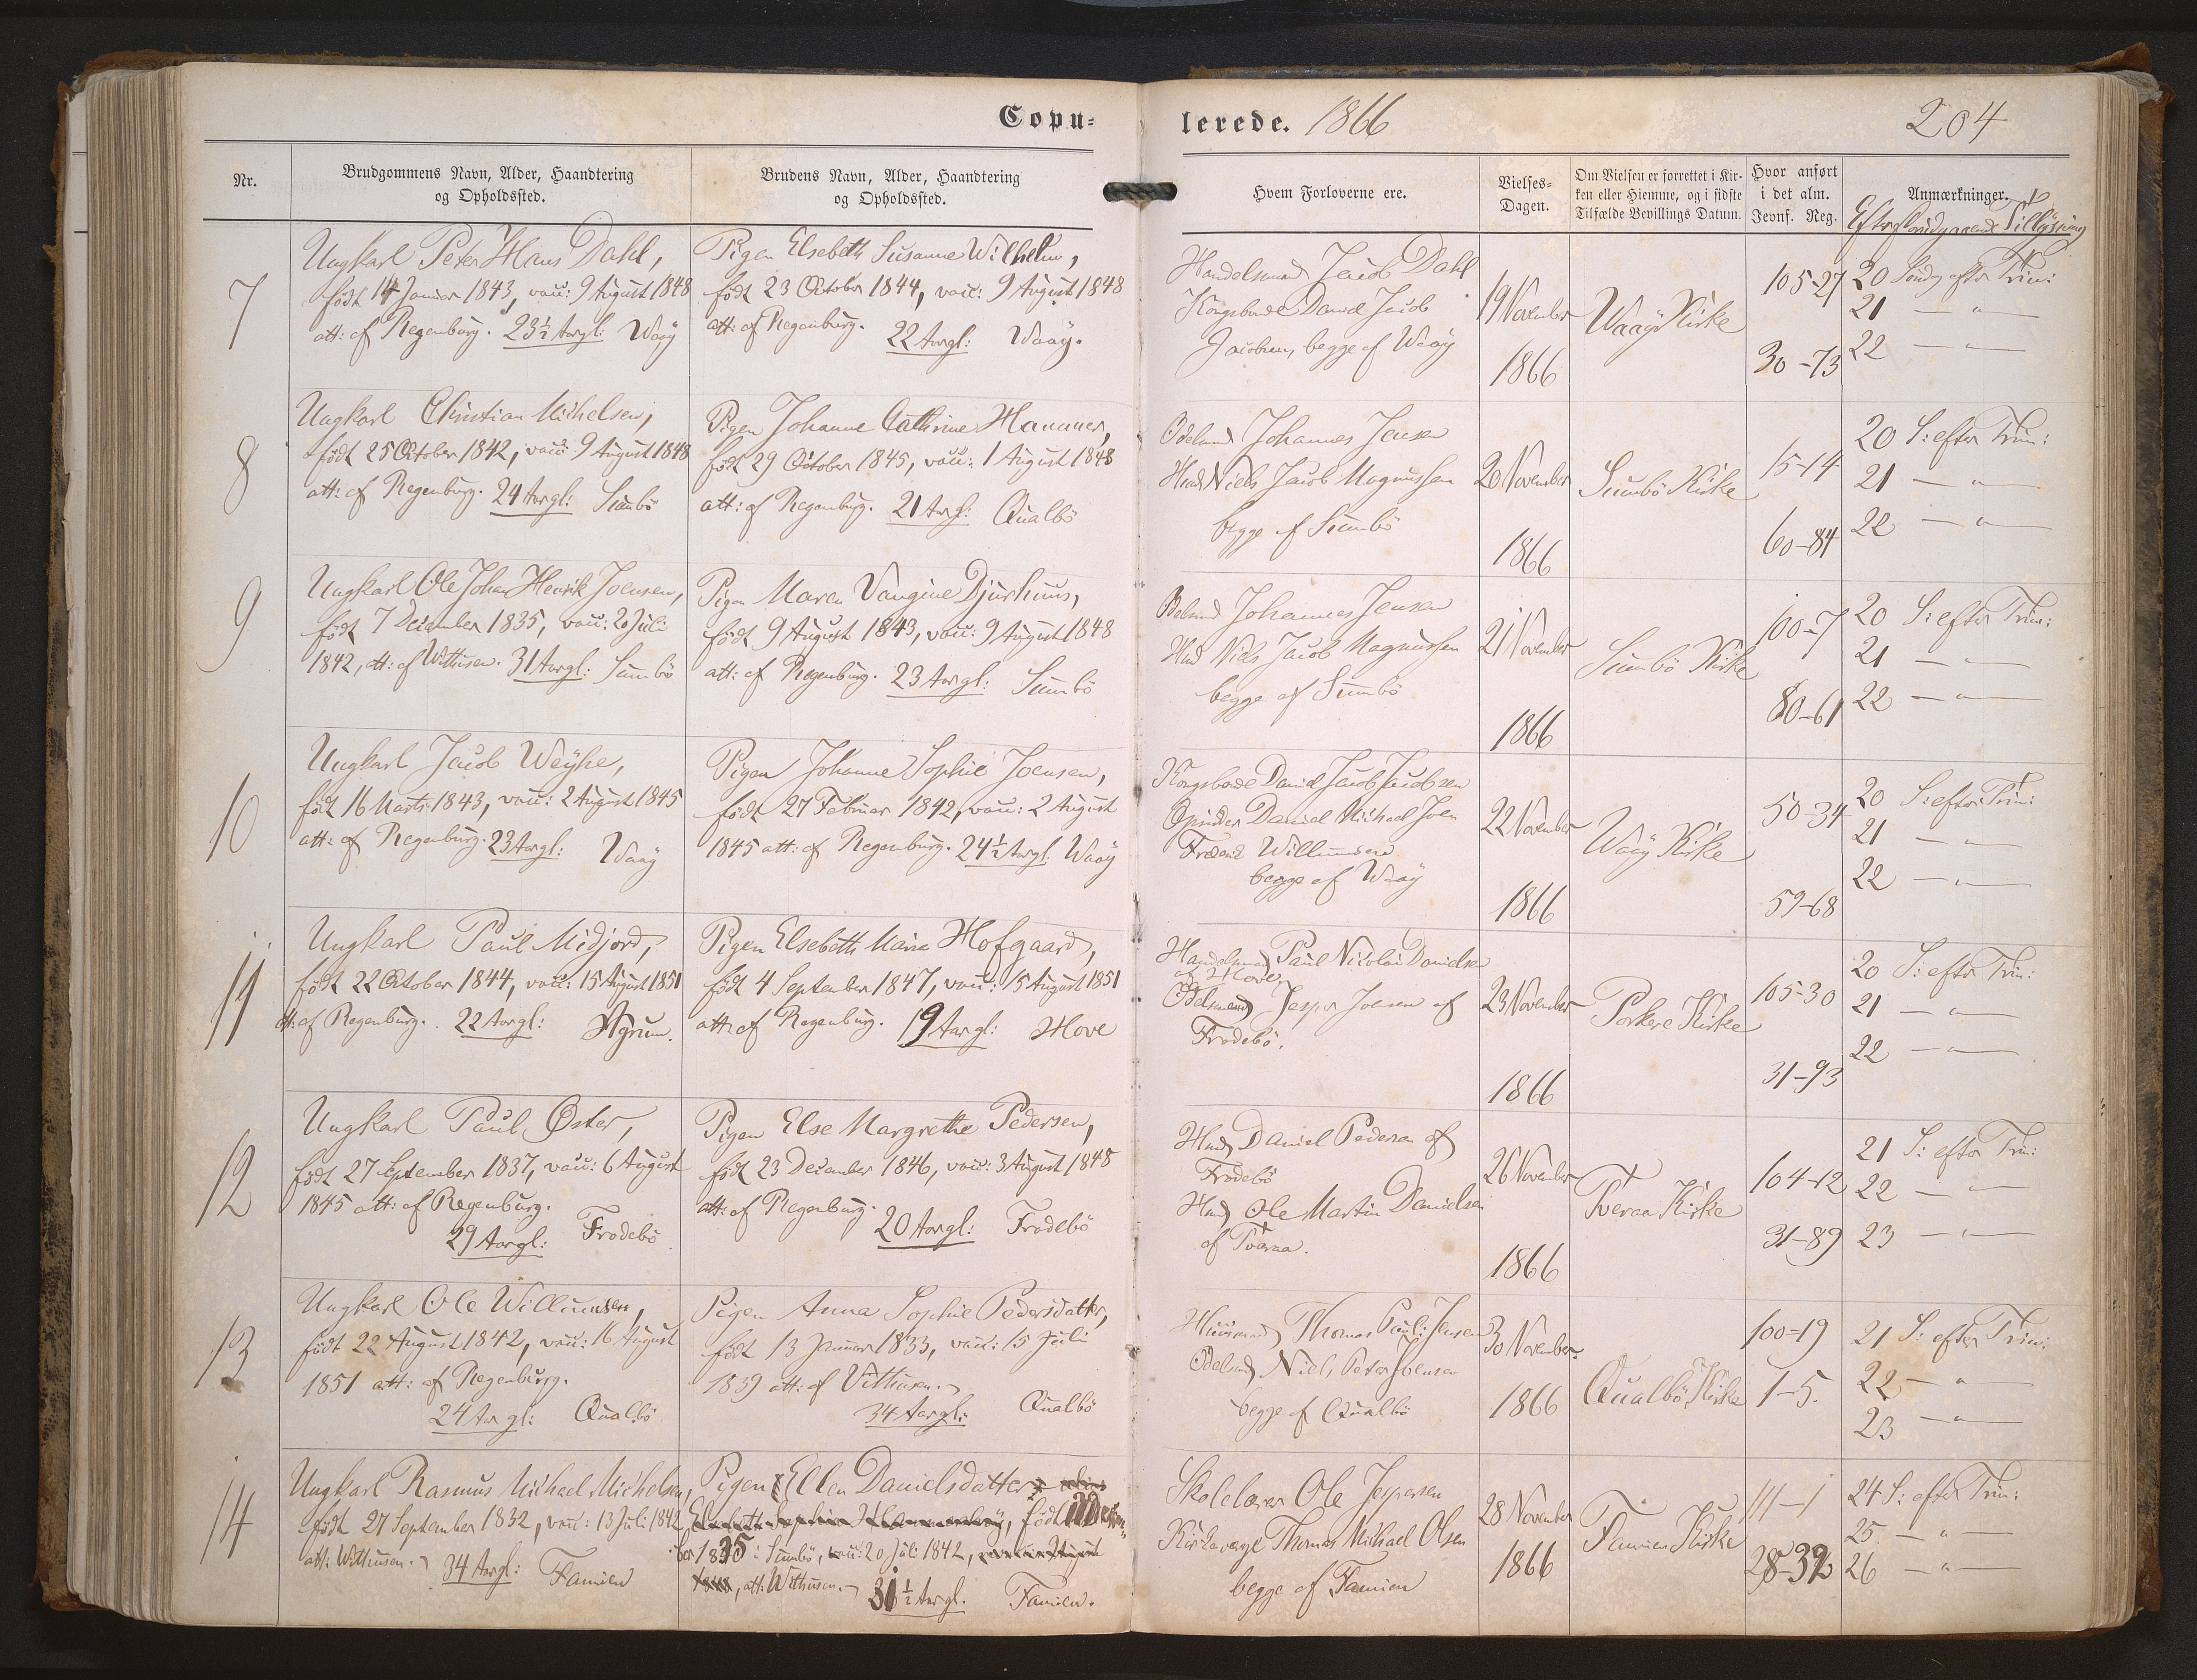 Copu=
lerede. 1866
204
Nr.
Brudgommens Navn, Alder, Haandtering
og Opholdssted.
Brudens Navn, Alder, Haandtering
og Opholdssted.
Hvem Forloverne ere.
Vielses=
Dagen.
Om Vielsen er forrettet i Kir=
ken eller Hiemme, og i sidste
Tilfælde Bevillings Datum.
Hvor anført
i det alm.
Jevnf. Reg.
Anmærkninger.
Efter foregaaende Tillysning
7
Ungkarl Peter Hans Dahl,
født 14 Januar 1843, vacc: 9 August 1848
att: af Regenburg. 23½ Aargl: Waaÿ
Pigen Elsebeth Susanne Wilhelm,
født 23 October 1844, vacc: 9 August 1848
att: af Regenburg. 22 Aargl: Waaÿ.
Handelsmand Jacob Dahl
Kongsbonde David Jacob
Jacobsen, begge af Waaÿ
19 November
1866
Waaÿ Kirke
105-27
30-73
20 Sønd. efter Trin:
21 — " —
22 — " —
8
Ungkarl Christian Michelsen,
født 25 October 1842, vacc: 9 August 1848
att: af Regenburg. 24 Aargl: Sumbö
Pigen Johanne Cathrine Hammer,
født 29 October 1845, vacc: 1 August 1848
att: af Regenburg. 21 Aargl: Qualbö
Odelsmd Johannes Jensen
Husmd Niels Jacob Magnussen
begge af Sumbö
20 November
1866
Sumbö Kirke
15-14
60-84
20 S: efter Trin:
21 — " —
22 — " —
9
Ungkarl Ole Johan Henrik Joensen,
født 7 December 1835, vacc: 20 Juli
1842, att: af Witthusen. 31 Aargl: Sumbö
Pigen Maren Vangine Djurhuus,
født 9 August 1843, vacc: 9 August 1848
att: af Regenburg. 23 Aargl: Sumbö
Odelsmd Johannes Jensen
Husmd Niels Jacob Magnussen
begge af Sumbö
21 November
1866
Sumbö Kirke
100-7
80-61
20 S: efter Trin:
21 — " —
22 — " —
10
Ungkarl Jacob Weÿhe,
født 16 Marts 1843, vacc: 2 August 1845
att: af Regenburg. 23 Aargl: Waaÿ
Pigen Johanne Sophie Joensen,
født 27 Februar 1842, vacc: 2 August
1845 att: af Regenburg. 24½ Aargl. Waaÿ
Kongsbonde David Jacob Jacobsen
Opsidder Daniel Michael Joen
Frederik Willumsen
begge af Waaÿ
22 November
1866
Waaÿ Kirke
50-34
59-68
20 S: efter Trin:
21 — " —
22 — " —
11
Ungkarl Paul Midjord,
født 22 October 1844, vacc: 15 August 1851
att: af Regenburg. 22 Aargl: Hÿrum.
Pigen Elsebeth Maria Hofgaard,
født 4 September 1847, vacc: 15 August 1851
att: af Regenburg. 19 Aargl: Hove
Handelsmand Paul Nicolai Danielsen
af Hove,
Odelsmand Jesper Joensen af
Frodebö.
23 November
1866
Porkere Kirke
105-30
31-93
20 S: efter Trin:
21 — " —
22 — " —
12
Ungkarl Paul Øster,
født 27 September 1837, vacc: 6 August
1845 att: af Regenburg.
29 Aargl: Frodebö
Pigen Else Margrethe Pedersen,
født 23 December 1846, vacc: 3 August 1848
att: af Regenburg.
20 Aargl: Frodebö
Husmd Daniel Pedersen af
Frodebö
Husmd Ole Martin Danielsen
af Tveraa.
26 November
1866
Tveraa Kirke
104-12
31-89
21 S: efter Trin:
22 — " —
23 — " —
13
Ungkarl Ole Willumsen,
født 22 August 1842, vacc: 16 August
1851 att: af Regenburg.
24 Aargl: Qualbö
Pigen Anna Sophie Pedersdatter,
født 13 Januar 1833, vacc: 15 Juli
1839 att: af Vithusen.
34 Aargl: Qualbö
Huusmand Thomas Paul: Jensen
Odelsmd Niels Peter Joensen
begge af Qualbö
30 November
1866
Qualbö Kirke
100-19
1-5.
21 S: efter Trin:
22 — " —
23 — " —
14
Ungkarl Rasmus Michael Michelsen,
født 27 September 1832, vacc: 13 Juli 1842
att: Witthusen. 34 Aargl: Famien
Pigen Ellen Danielsdatter
født
1835 i Sumbö, vacc: 20 Juli 1842,
att: Witthusen. 31½ Aargl. Famien.
Skolelærer Ole Jespersen
Kirkeværge Thomas Michael Olsen
begge af Famien
28 November
1866
Famien Kirke
111-1
28-32
24 S: efter Trin:
25 — " —
26 — " —